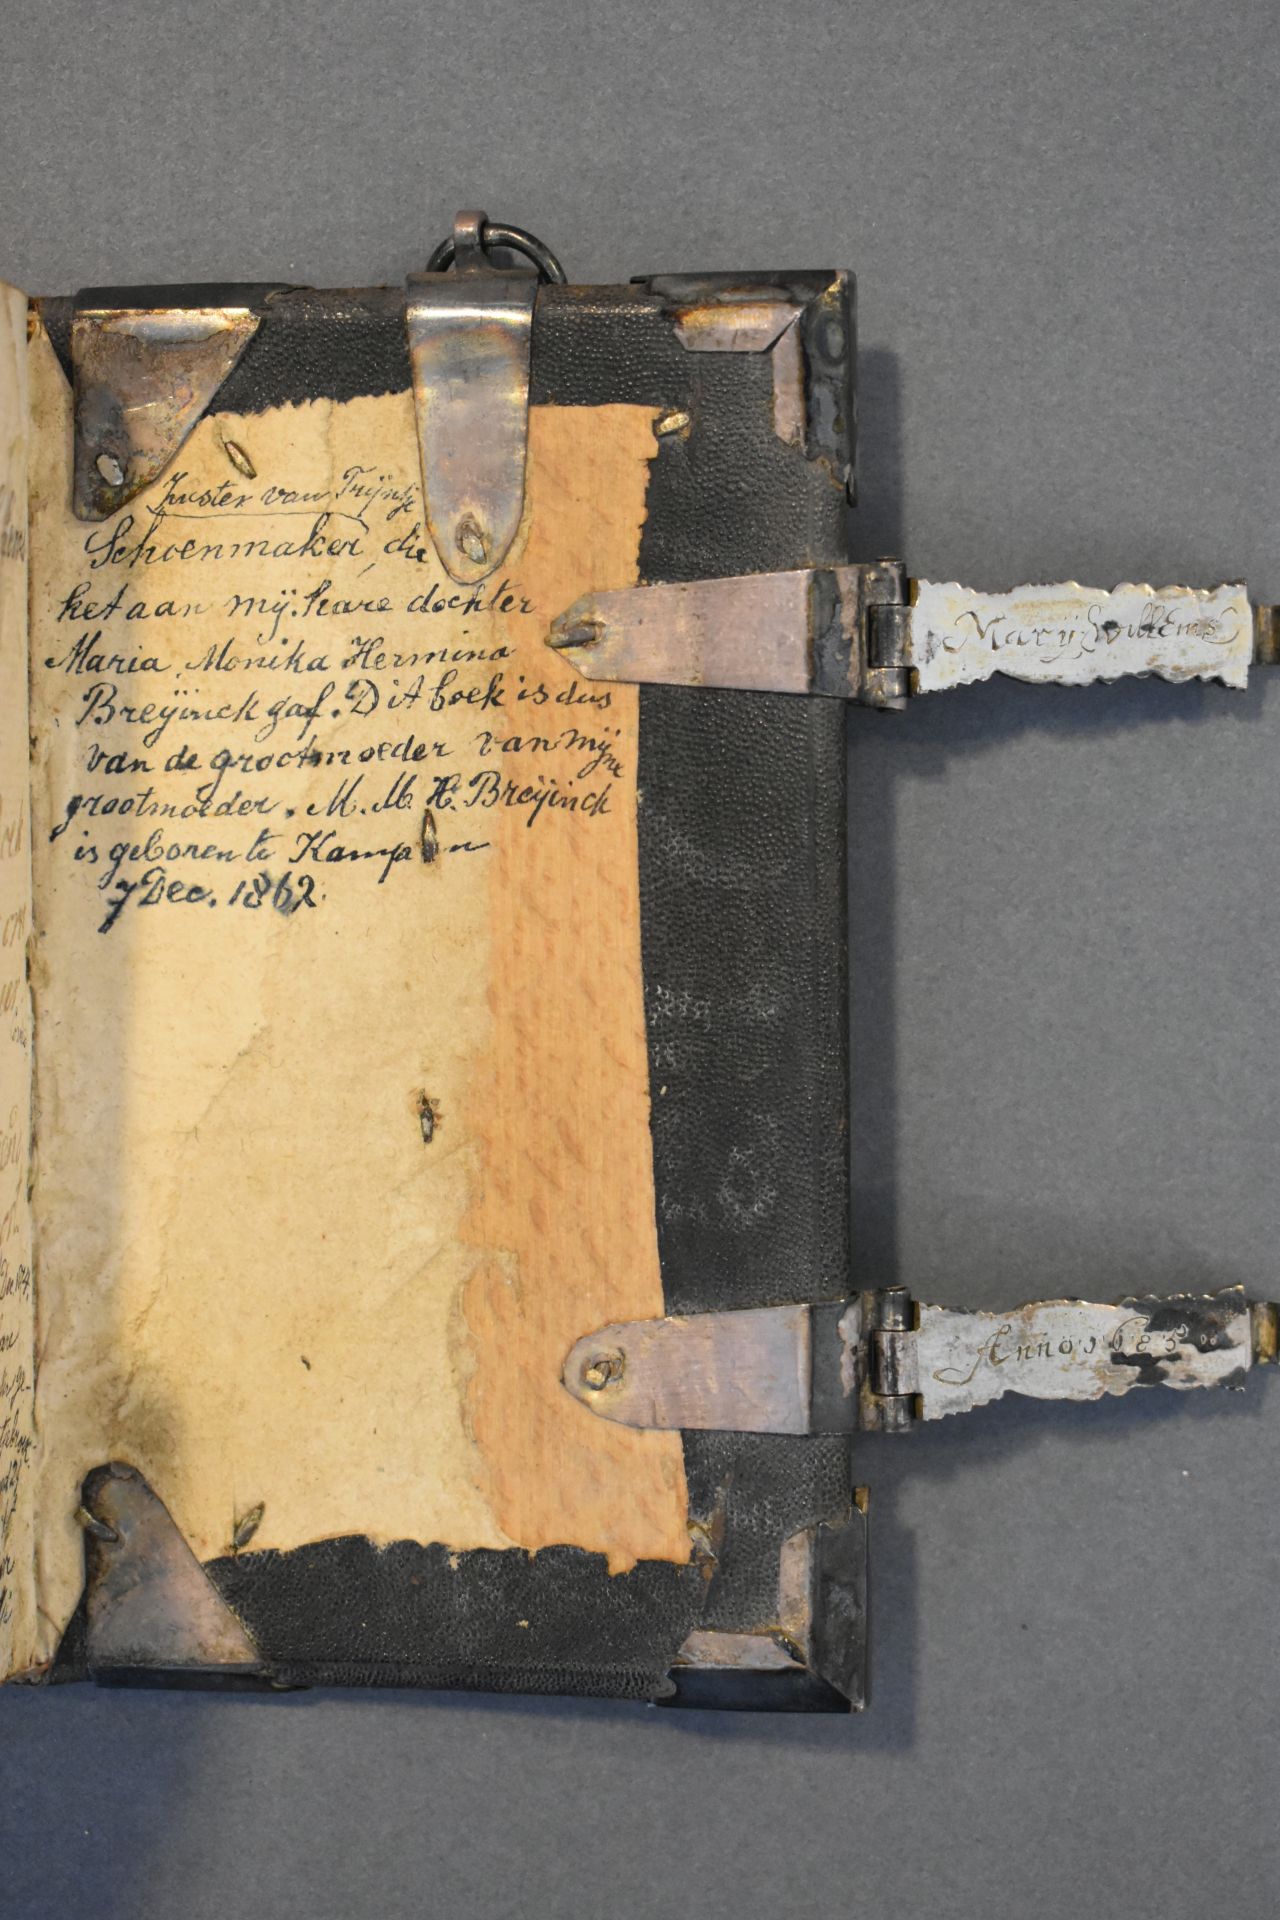 Zuster van Trijntje
Schoenmaker, die
het aan mij. hare dochter
Maria Monika Hermina
Breijinck gaf. Dit boek is dus
van de grootmoeder van mijne
grootmoeder. M. M. H. Breijinck
is geboren te Kampen
7 Dec. 1862.
Marij Willems
Anno 1685